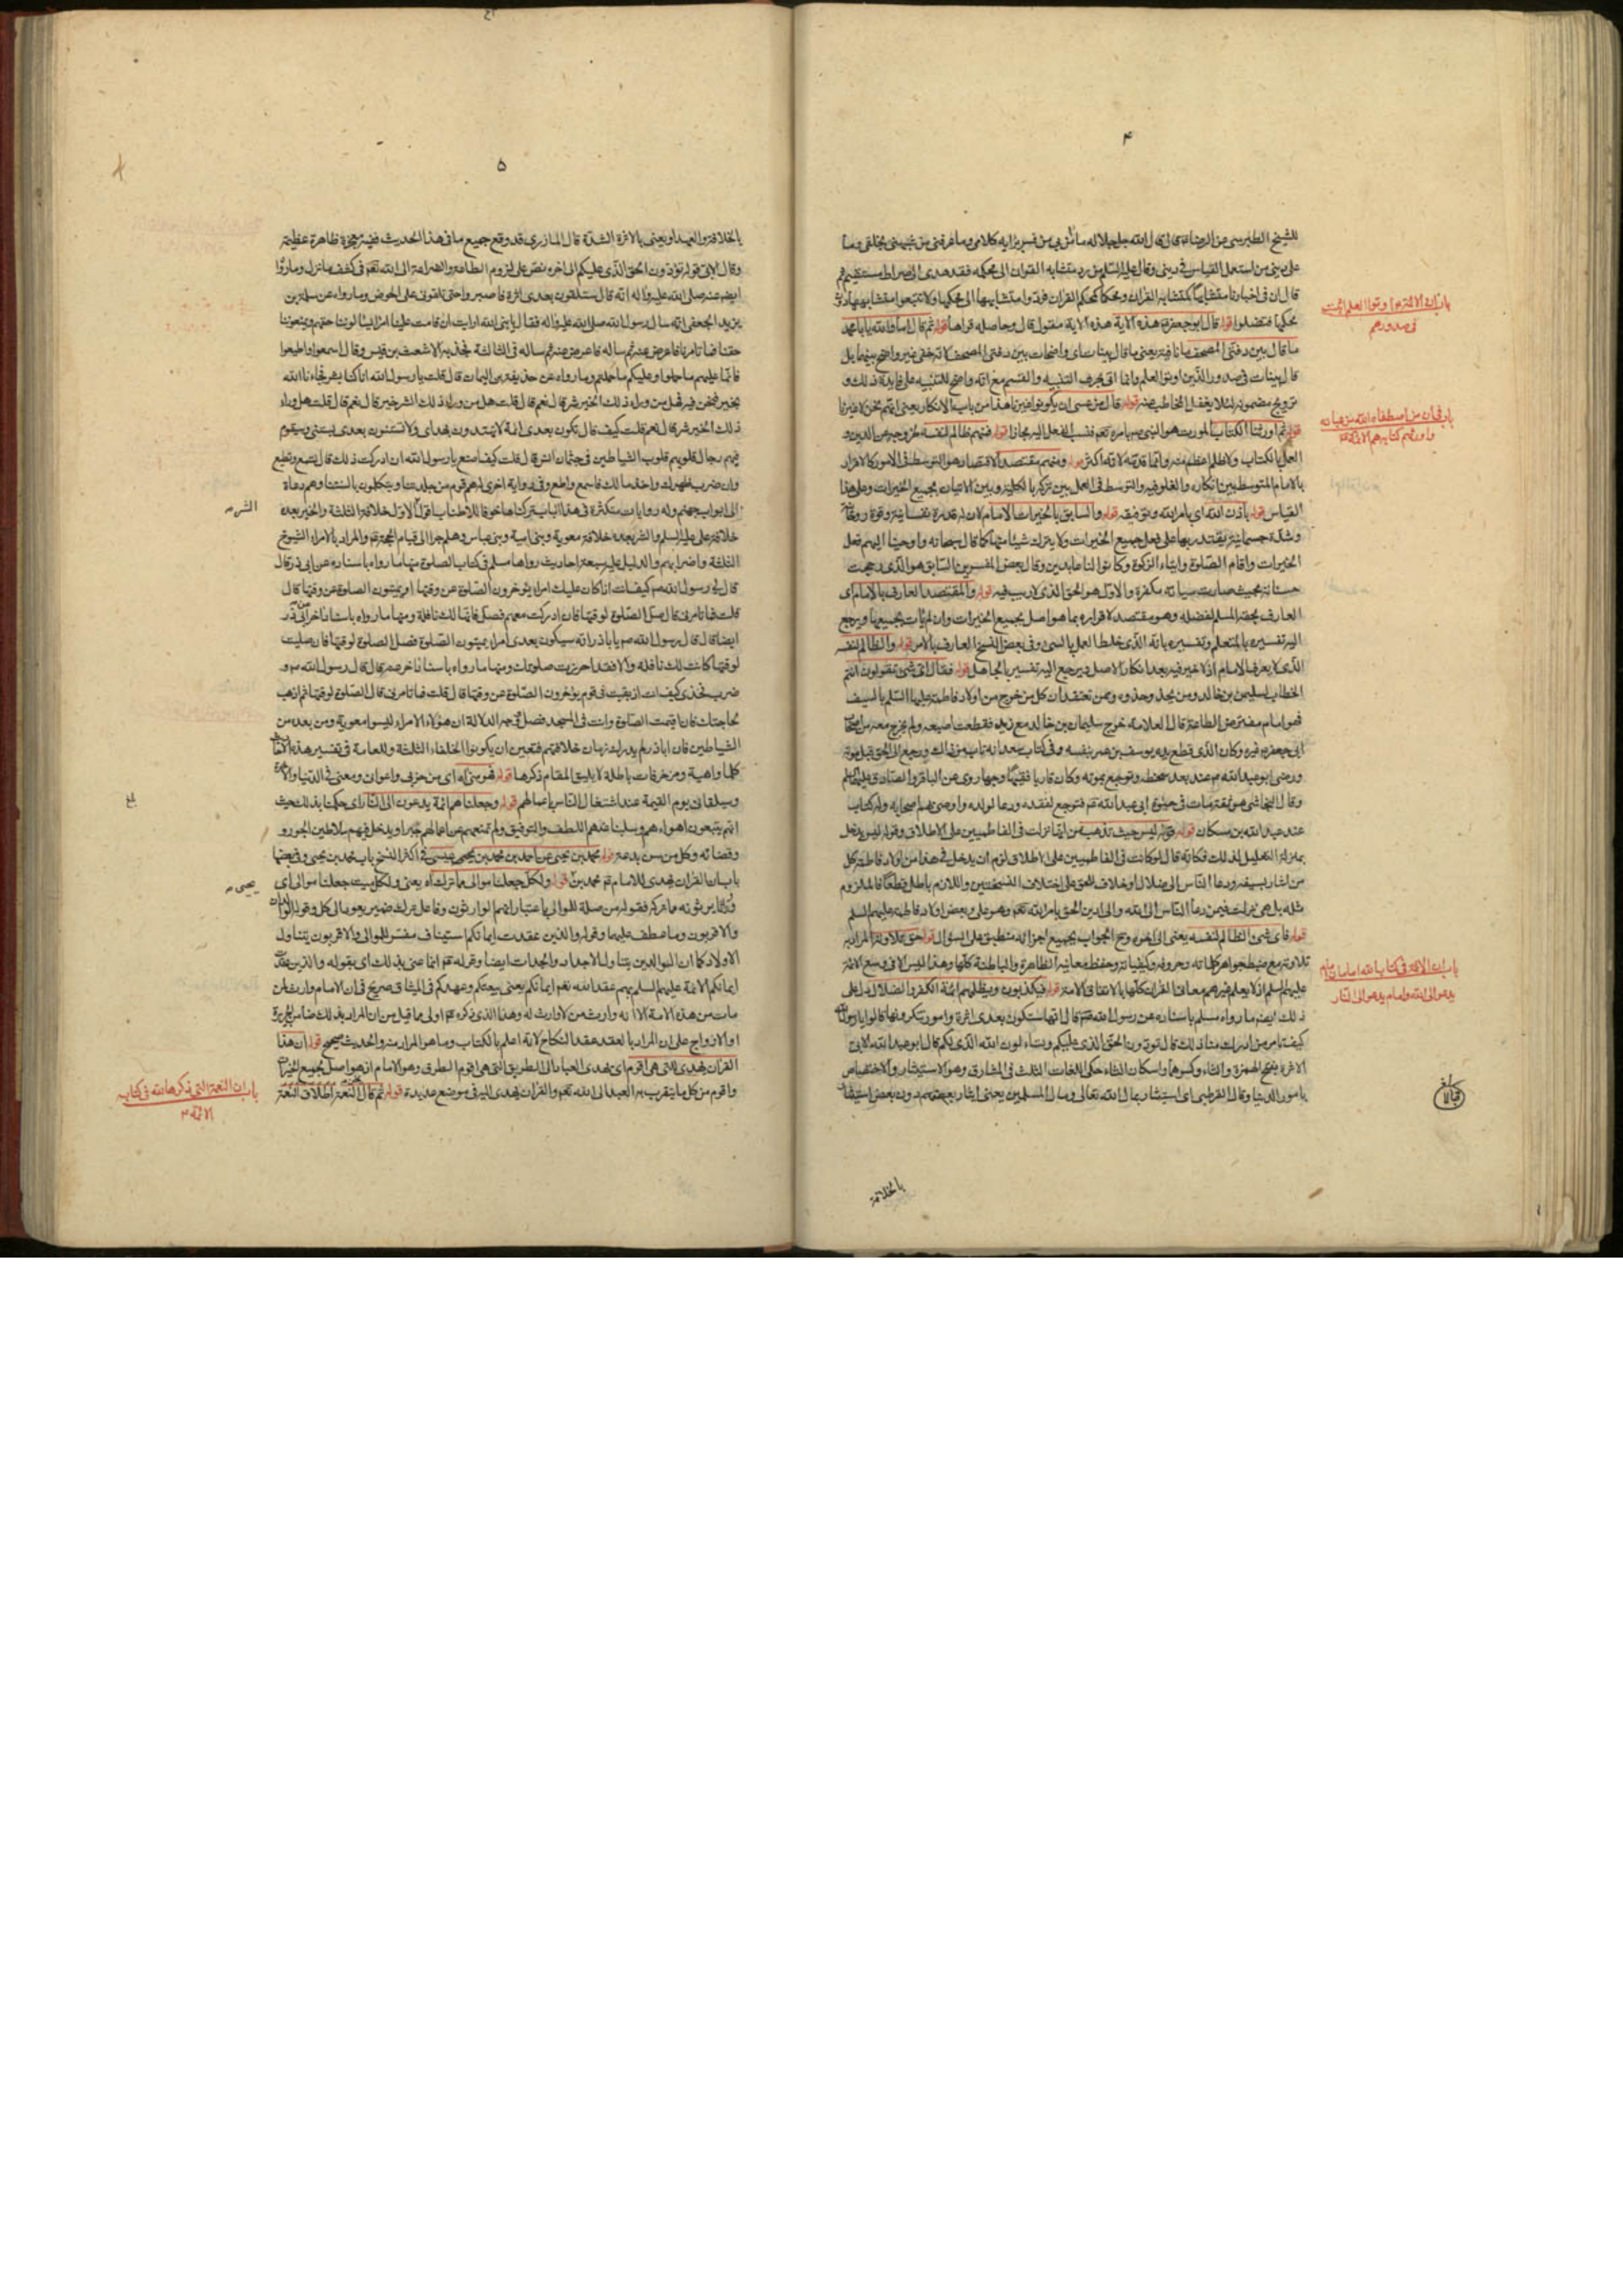 ۴
للشيخ الطبرسى عن الرضا قال قال الله جل جلاله ما آمن بى من فسر برايه كلامى وما عرفنى من شبهنى بخلقى وما
على دينى من استعمل القياس فى دينى وقال عليه السلم من رد متشابه القران الى محكمه فقد هدى الى صراط مستقيم ثم
قال ان فى اخبارنا متشابها كمتشابه القران ومحكما كمحكم القران فردوا متشابهها الى محكمها ولا تتبعوا متشابهها دون
محكمها فتضلوا قوله قال ابو جعفر هذه الاية هذه الاية مفعول قال وحاصله قراها قوله ثم قال اما والله يابا محمد
ما قال بين دفتى المصحف ما نافية يعنى ما قال بينات اى واضحات بين دفتى المصحف لانه خفى غير واضح بينهما بل
قال بينات فى صدور الذين اوتوا العلم وانما اتى بحرف التنبيه والقسم مع انه واضح للتنبيه على فايدة ذلك و
ترويج مضمونه لئلا يغفل المخاطب عنه قوله قال من عسى ان يكونوا غيرنا هذا من باب الانكار يعنى انهم نحن لا غيرنا
قوله ثم اورثنا الكتاب المورث هو النبى بامره تعم فنسب الفعل اليه مجازا قوله فمنهم ظالم لنفسه لخروجه عن الدين و
العمل بالكتاب ولا ظلم اعظم منه وانما قدمه لانه اكثر قوله ومنهم مقتصد الاقتصاد هو التوسط فى الامور كالاقرار
بالامام المتوسط بين انكاره والغلو فيه والتوسط فى العمل بين تركه بالكلية وبين الاتيان بجميع الخيرات وعلى هذا
القياس قوله باذن الله اى بامر الله وتوفيقه قوله والسابق بالخيرات الامام لان له قدرة نفسانية وقوة روحانية
وشدة جسمانية يقتدر بها على فعل جميع الخيرات ولا يترك شيئا منها كما قال سبحانه واوحينا اليهم فعل
الخيرات واقام الصلوة وايتاء الزكوة وكانوا لنا عابدين وقال بعض المفسرين السابق هو الذى رجحت
حسناته بحيث صارت سيئاته مكفرة والاول هو الحق الذى لا ريب فيه قوله والمقتصد العارف بالامام اى
العارف بحقه المسلم لفضله وهو مقتصد لاقراره بما هو اصل بجميع الخيرات وان لم يات بجميعها ويرجع
اليه تفسيره بالمتعلم وتفسيره بانه الذى خلط العمل بالسئ وفى بعض النسخ العارف بالامر قوله والظالم لنفسه
الذى لا يعرف الامام اذ لا خير فيه بعد انكار الاصل ويرجع اليه تفسيره بالجاهل قوله فقال اى شئ تقولون انتم
الخطاب لسليمن بن خالد ومن يحذو حذوه وممن تعتقد ان كل من خرج من اولاد فاطمة عليها السلم بالسيف
فهو امام مفترض الطاعة قال العلامة خرج سليمان بن خالد مع زيد فقطعت اصبعه ولم يخرج معه من اصحاب
ابى جعفر غيره وكان الذى قطع يده يوسف بن عمر بنفسه وفى كتاب سعد انه تاب من ذلك ورجع الى الحق قبل موته
ورضى ابو عبد الله عنه بعد سخطه وتوجع بموته وكان قاريا فقيها وجها روى عن الباقر والصادق عليهما السلم
وقال النجاشى هو ثقة مات فى حيوة ابى عبد الله فتوجع لفقده ودعا لولده واوصى بهم اصحابه وله كتاب
عنه عبد الله بن مسكان قوله قوله ليس حيث تذهب من انها نزلت فى الفاطميين على الاطلاق وقوله ليس يدخل
بمنزلة التعليل لذلك فكانه قال لو كانت فى الفاطميين على الاطلاق لزم ان يدخل فى هذا من اولاد فاطمة كل
من اشار بسيفه ودعا الناس الى ضلال او خلاف الحق على اختلاف النسختين واللازم باطل قطعا فالملزوم
مثله بل هى نزلت فيمن دعا الناس الى الله والى الدين الحق بامر الله تعم وهو على وبعض اولاد فاطمة عليهم السلم
قوله فاى شئ الظالم لنفسه يعنى الى اخره وح الجواب بجميع اجزائه منطبق على السؤال قوله حق تلاوته المراد به
تلاوته مع ضبط جواهر كلماته وحروفه وكيفياته وحفظ معانيه الظاهرة والباطنة كلها وهذا ليس الا فى وسع الائمة
عليهم السلم اذ لا يعلم غيرهم معانى القران كلها بالاتفاق الامة قوله فيكذبون ويظلمهم ائمة الكفر والضلال يدل على
ذلك ايضا ما رواه مسلم باسناده عن رسول الله قال انها ستكون بعدى اثرة وامور تنكرونها قالوا يا رسول الله
كيف تامر من ادرك منا ذلك قال تودون الحق الذى عليكم وتساءلون الله الذى لكم قال ابو عبد الله الابى
الاثرة بفتح الهمزة والثاء وكسرها واسكان الثاء حكى اللغات الثلث فى المشارق وهو الاستيثار والاختصاص
بامور الدنيا وقال القرطبى اى استيثار بمال الله تعالى ومال المسلمين يعنى ايثار بعضهم دون بعض
باب ان الائمة اوتوا العلم اثبت
فى صدورهم
باب فى ان من اصطفاه الله من عباده
واورثهم كتابه هم الائمة
باب ان الائمة فى كتاب الله امامان امام
يدعو الى الله وامام يدعو الى النار
بالخلافة
۵
بالخلافة والعهد او يعنى بالاثرة الشدة قال المازرى قد وقع جميع ما فى هذا الحديث ففيه معجزة ظاهرة عظيمة
وقال الابى قوله تؤدون الحق الذى عليكم الى اخره نص على لزوم الطاعة والضراعة الى الله تعم فى كشف ما نزل وما رووا
ايضا عنه صلى الله عليه واله انه قال ستلقون بعدى اثرة فاصبروا حتى تلقونى على الحوض وما رواه عن سلمة بن
يزيد الجعفى انه سال رسول الله صلى الله عليه واله فقال يا نبى الله ارايت ان قامت علينا امراء يسالوننا حقهم ويمنعوننا
حقنا فما تامرنا فاعرض عنه ثم ساله فاعرض عنه ثم ساله فى الثالثة فجذبه الاشعث بن قيس وقال اسمعوا واطيعوا
فانما عليهم ما حملوا وعليكم ما حملتم وما رواه عن حذيفة بن اليمان قال قلت يا رسول الله انا كنا بشر فجاءنا الله
بخير فنحن فيه فهل من وراء ذلك الخير شر قال نعم قال قلت هل من وراء ذلك الشر خير قال نعم قال قلت هل وراء
ذلك الخير شر قال نعم قلت كيف قال تكون بعدى ائمة لا يهتدون بهداى ولا تستنون بعدى بسنتى وسيقوم
فيهم رجال قلوبهم قلوب الشياطين فى جثمان انس قال قلت كيف اصنع يا رسول الله ان ادركت ذلك قال تسمع وتطيع
وان ضرب ظهرك واخذ مالك فاسمع واطع وفى رواية اخرى لهم قوم من جلدتنا ويتكلمون بالسنتنا وهم دعاة
الى ابواب جهنم وله روايات متكثرة فى هذا الباب تركناها خوفا للاطناب اقول الاول خلافة الثلثة والخير بعده
خلافة على عليه السلم والشر بعده خلافة معوية وبنى امية وبنى عباس وهلم جرا الى قيام الحجة والمراد بالامراء الشيوخ
الثلثة واضرابهم والدليل عليه سبعة احاديث رواها مسلم فى كتاب الصلوة منها ما رواه باسناده عن ابى ذر قال
قال لى رسول الله كيف انت اذا كان عليك امراء يؤخرون الصلوة عن وقتها او يميتون الصلوة عن وقتها قال
قلت فما تامرنى قال صل الصلوة لوقتها فان ادركت معهم فصل فانها لك نافلة ومنها ما رواه باسناد اخر عن ابى ذر
ايضا قال قال رسول الله ص يا باذر انه سيكون بعدى امراء يميتون الصلوة فصل الصلوة لوقتها فان صليت
لوقتها كانت لك نافلة والا فقد احرزت صلوتك ومنها ما رواه باسناد اخر عنه قال قال رسول الله ص و
ضرب فخذى كيف انت اذا بقيت فى قوم يؤخرون الصلوة عن وقتها قال قلت فما تامرنى قال الصلوة لوقتها ثم اذهب
لحاجتك فان اقيمت الصلوة وانت فى المسجد فصل وجه الدلالة ان هؤلاء الامراء ليسوا معوية ومن بعده من
الشياطين فان اباذر لم يدرك زمان خلافتهم فتعين ان يكونوا الخلفاء الثلثة وللعامة فى تفسير هذه
كلها واهية ومزخرفات باطلة لا يليق المقام ذكرها قوله فهو منى اه اى من حزبى واعوان ومعنى فى الدنيا والاخرة
وسيلقانى يوم القيمة عند اشتغال الناس باعمالهم قوله وجعلناهم ائمة يدعون الى النار اى حكمنا بذلك حيث
انهم يتبعون اهواءهم وسلبنا عنهم اللطف والتوفيق ولم نمنعهم عن اعمالهم جبرا ويدخل فيهم سلاطين الجور و
وقضاته وكل من سن بدعة قوله محمد بن يحيى عن احمد بن محمد بن يحيى عيسى فى اكثر النسخ باب محمد بن يحيى وفى بعضها
باب ان القران يهدى للامام ثم محمد بن قوله ولكل جعلنا موالى مما ترك اه يعنى ولكل ميت جعلنا موالى اى
وراثا يرثونه مما تركه فقوله من صلة للموالى باعتبار انهم الوارثون وفاعل ترك ضمير يعود الى كل وقوله الوالدان
والاقربون وما عطف عليهما وقوله والذين عقدت ايمانكم استيناف مفسر للموالى والاقربون يتناول
الاولاد كما ان الوالدين يتناول الاجداد والجدات ايضا وقوله انما عنى بذلك اى بقوله والذين عقدت
ايمانكم الائمة عليهم السلم بهم عقد الله تعم ايمانكم يعنى بيعتكم وعهدكم فى الميثاق صريح فى ان الامام وارث لمن
مات من هذه الامة لانه وارث من لا وارث له وهذا الذى ذكره اولى مما قيل من ان المراد بذلك ضامن الجريرة
او الازواج على ان المراد بالعقد عقد النكاح لانه اعلم بالكتاب وما هو المراد منه والحديث صحيح قوله ان هذا
القران يهدى للتى هى اقوم اى يهدى العباد الى الطريق التى هى اقوم الطرق وهو الامام اذ هو اصل لجميع الخيرات
واقوم من كل ما يتقرب به العبد الى الله تعم والقران يهدى اليه فى موضع عديدة قوله ثم قال النعمة اطلاق النعمة
الشر
بلغ
يحيى
باب ان النعمة التى ذكرها الله فى كتابه
الائمة